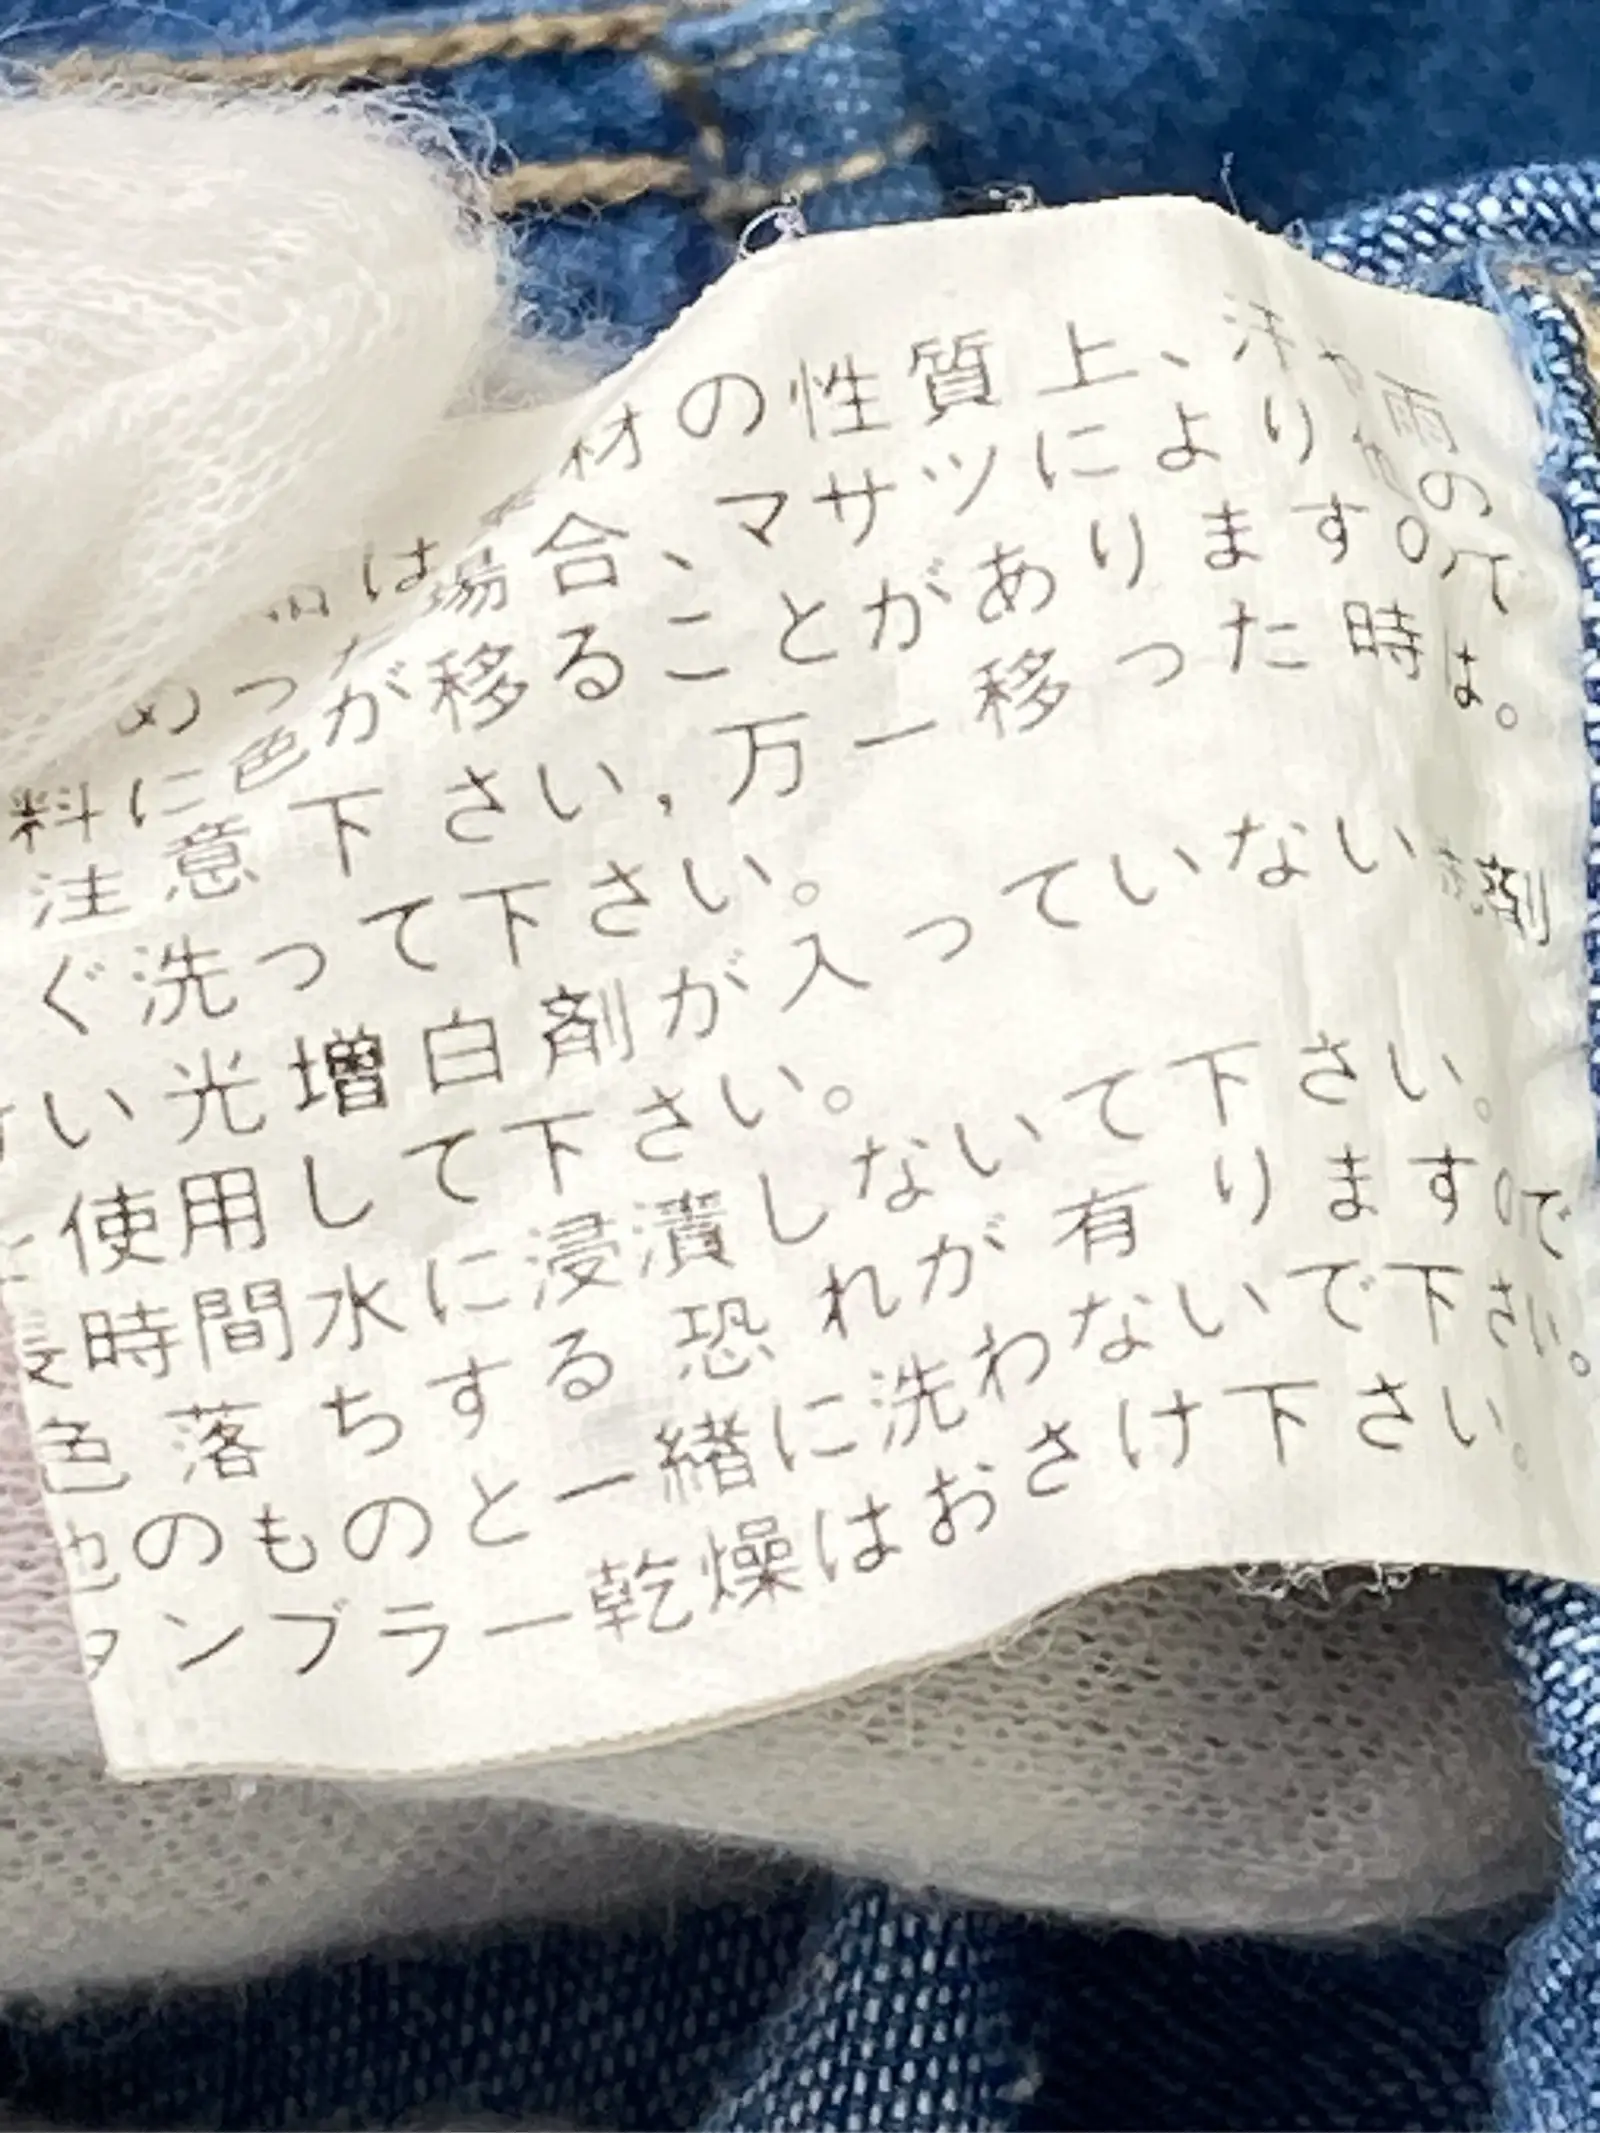 材の性質上、汗や雨の
は場合、マサツにより他の
料に色が移ることがありますので
注意下さい，万一移った時は。
ぐ洗って下さい。
い光増白剤が入っていない 剤
使用して下さい。
時間水に浸漬しないで下さい。
色落ちする恐れが有りますので
のものと一緒に洗わないで下さい。
タンブラー乾燥はおさけ下さい。